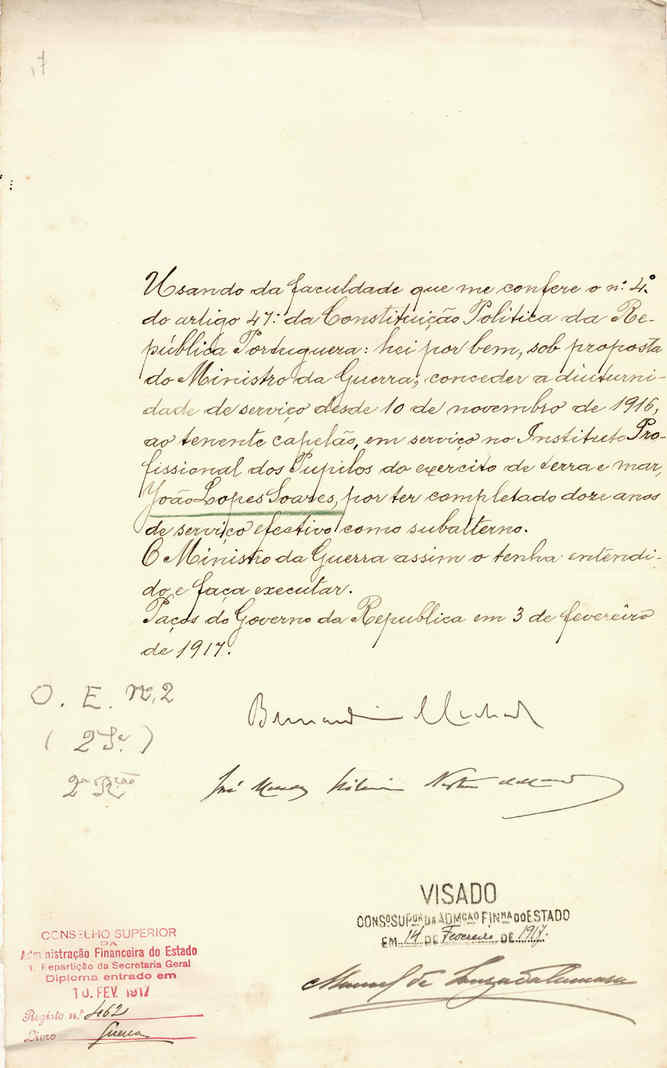 17
Usando da faculdade que me confere o nº. 4º
do artigo 47º. da Constituição Politica da Re-
pública Portuguesa: hei por bem, sob proposta
do Ministro da Guerra, conceder a diuturni-
dade de serviço desde 10 de novembro de 1916,
ao tenente capelão, em serviço no Instituto Pro-
fissional dos Pupilos do exercito de terra e mar,
João Lopes Soares, por ter completado doze anos
de serviço efectivo como subalterno.
O Ministro da Guerra assim o tenha entendi-
do e faça executar.
Paços do Governo da Republica em 3 de fevereiro
de 1917.
O. E. nº. 2
(2ª Sᵉ.)
Bernardino Machado
José Mendes Ribeiro Norton de Matos
VISADO
CONSº SUPOR DA ADMÇÃO FINRA DO ESTADO
EM 14 DE Fevereiro DE 1917.
CONSELHO SUPERIOR
DA
Administração Financeira do Estado
1. Repartição da Secretaria Geral
Diploma entrado em
10. FEV. 1917
Registo n.º 462
Livro Guerra
Manuel de Sousa da Camara